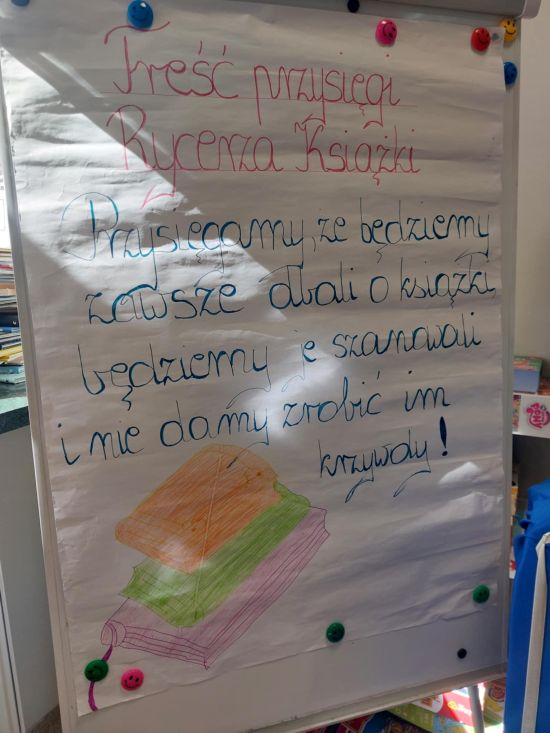 Treść przysięgi
Rycerza Książki
Przysięgamy, że będziemy
zawsze dbali o książki,
będziemy je szanowali
i nie damy zrobić im
krzywdy!